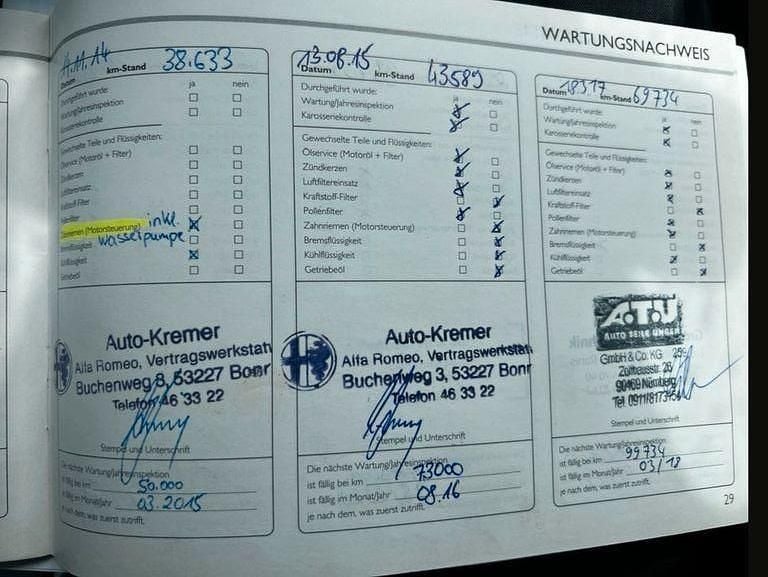 WARTUNGSNACHWEIS
11.11.14 km-Stand 38.633
ja nein
Durchgeführt wurde:
Wartung/Jahresinspektion
Karosseriekontrolle
Gewechselte Teile und Flüssigkeiten:
Ölservice (Motoröl + Filter)
Zündkerzen
Luftfiltereinsatz
Kraftstoff-Filter
Pollenfilter
Zahnriemen (Motorsteuerung) inkl.
Wasserpumpe
Bremsflüssigkeit
Kühlflüssigkeit
Getriebeöl
Auto-Kremer
Alfa Romeo, Vertragswerkstatt
Buchenweg 3, 53227 Bonn
Telefon 46 33 22
Stempel und Unterschrift
Die nächste Wartung/Jahresinspektion
ist fällig bei km 50.000
ist fällig im Monat/Jahr 03.2015
je nach dem, was zuerst zutrifft.
13.08.15
Datum km-Stand 43589
ja nein
Durchgeführt wurde:
Wartung/Jahresinspektion
Karosseriekontrolle
Gewechselte Teile und Flüssigkeiten:
Ölservice (Motoröl + Filter)
Zündkerzen
Luftfiltereinsatz
Kraftstoff-Filter
Pollenfilter
Zahnriemen (Motorsteuerung)
Bremsflüssigkeit
Kühlflüssigkeit
Getriebeöl
Auto-Kremer
Alfa Romeo, Vertragswerkstatt
Buchenweg 3, 53227 Bonn
Telefon 46 33 22
Stempel und Unterschrift
Die nächste Wartung/Jahresinspektion
ist fällig bei km 73000
ist fällig im Monat/Jahr 08.16
je nach dem, was zuerst zutrifft.
Datum 18.3.17 km-Stand 69734
ja nein
Durchgeführt wurde:
Wartung/Jahresinspektion
Karosseriekontrolle
Gewechselte Teile und Flüssigkeiten:
Ölservice (Motoröl + Filter)
Zündkerzen
Luftfiltereinsatz
Kraftstoff-Filter
Pollenfilter
Zahnriemen (Motorsteuerung)
Bremsflüssigkeit
Kühlflüssigkeit
Getriebeöl
A.T.U
AUTO TEILE UNGER
GmbH & Co. KG
90469 Nürnberg
Stempel und Unterschrift
Die nächste Wartung/Jahresinspektion
ist fällig bei km 99734
ist fällig im Monat/Jahr 03/18
je nach dem, was zuerst zutrifft.
29